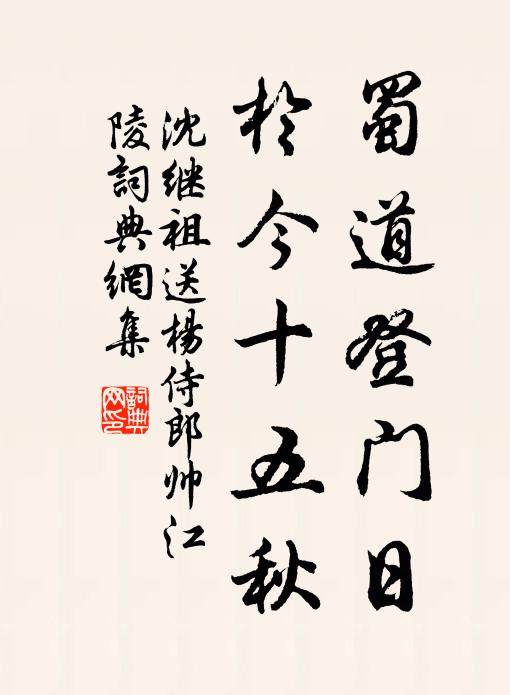 蜀道登门日
於今十五秋
沈继祖送楊侍郎帅江
陵詞典網集
詞典
网印